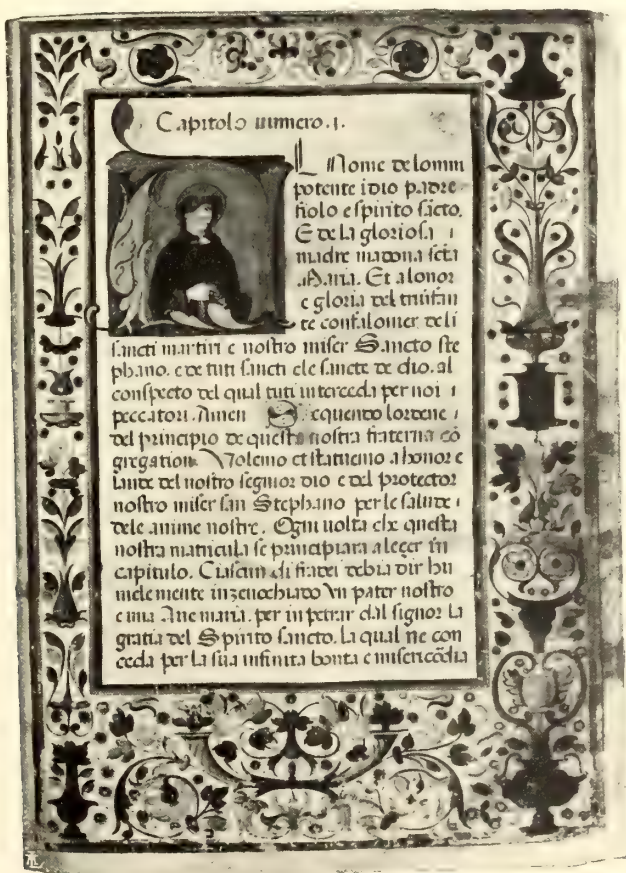 Capitolo numero .i.
L Nome de lomni
potente idio padre
fiolo e spirito sãcto.
E de la gloriosa i
madre madona scta
Maria. Et a lonor
e gloria del triũfan
te confalonier de li
sancti martiri e nostro miser Sancto ste
phano. e de tuti sancti e le sancte de dio. al
conspecto del qual tuti interceda per noi i
peccatori. Amen Sequendo lordene i
del principio de questa nostra fraterna cõ
gregation. Volemo et statuemo a honor e
laude del nostro segnior dio e del protector
nostro miser san Stephano per le salute i
dele anime nostre. Ogni uolta che questa
nostra matricula se principiara a leçer in
capitulo. Ciascun di fratei debia dir hu
mele mente inzenochiado Vn pater nostro
e una Aue maria. per inpetrar dal signor la
gratia del Spirito sancto. la qual ne con
ceda per la sua infinita bonta e misericõdia